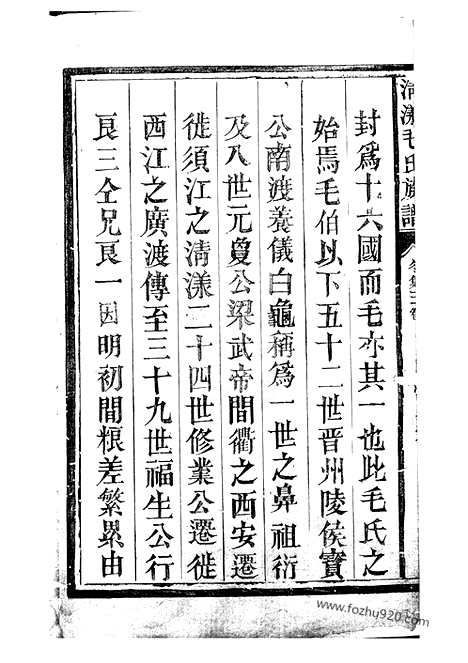 清漾毛氏族譜
封爲十六國而毛亦其一也此毛氏之
始焉毛伯以下五十二世晋州陵侯寳
公南渡養儀白龜稱爲一世之鼻祖衍
及八世元夐公梁武帝間衢之西安遷
徙須江之清漾二十四世修業公遷徙
西江之廣渡傳至三十九世福生公行
良三仝兄良一因明初間粮差繁累由
www.fozhu920.com